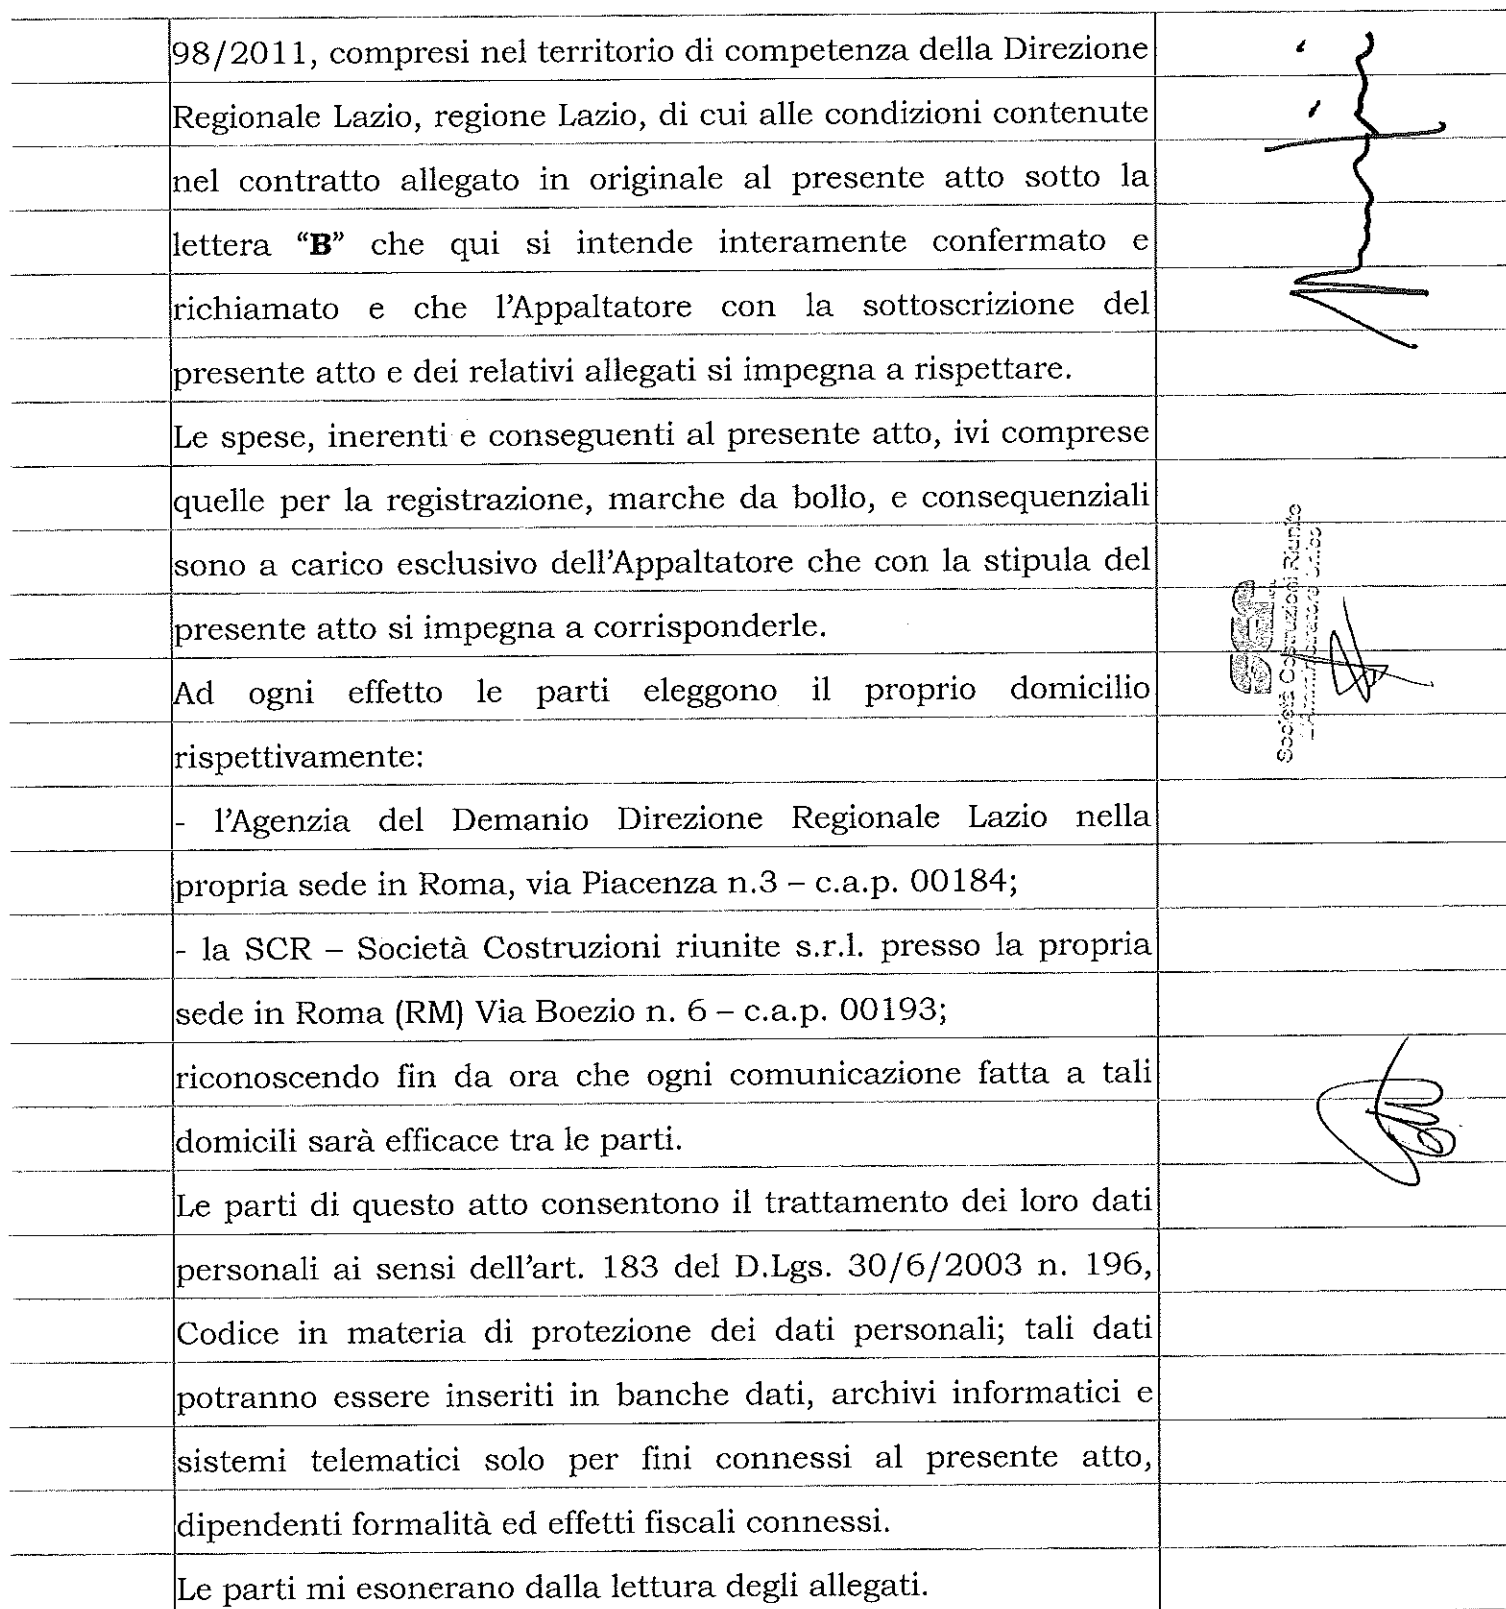 98/2011, compresi nel territorio di competenza della Direzione
Regionale Lazio, regione Lazio, di cui alle condizioni contenute
nel contratto allegato in originale al presente atto sotto la
lettera “B” che qui si intende interamente confermato e
richiamato e che l'Appaltatore con la sottoscrizione del
presente atto e dei relativi allegati si impegna a rispettare.
Le spese, inerenti e conseguenti al presente atto, ivi comprese
quelle per la registrazione, marche da bollo, e consequenziali
sono a carico esclusivo dell'Appaltatore che con la stipula del
presente atto si impegna a corrisponderle.
Ad ogni effetto le parti eleggono il proprio domicilio
rispettivamente:
- l'Agenzia del Demanio Direzione Regionale Lazio nella
propria sede in Roma, via Piacenza n.3 – c.a.p. 00184;
- la SCR – Società Costruzioni riunite s.r.l. presso la propria
sede in Roma (RM) Via Boezio n. 6 – c.a.p. 00193;
riconoscendo fin da ora che ogni comunicazione fatta a tali
domicili sarà efficace tra le parti.
Le parti di questo atto consentono il trattamento dei loro dati
personali ai sensi dell'art. 183 del D.Lgs. 30/6/2003 n. 196,
Codice in materia di protezione dei dati personali; tali dati
potranno essere inseriti in banche dati, archivi informatici e
sistemi telematici solo per fini connessi al presente atto,
dipendenti formalità ed effetti fiscali connessi.
Le parti mi esonerano dalla lettura degli allegati.
Società Costruzioni Riunite